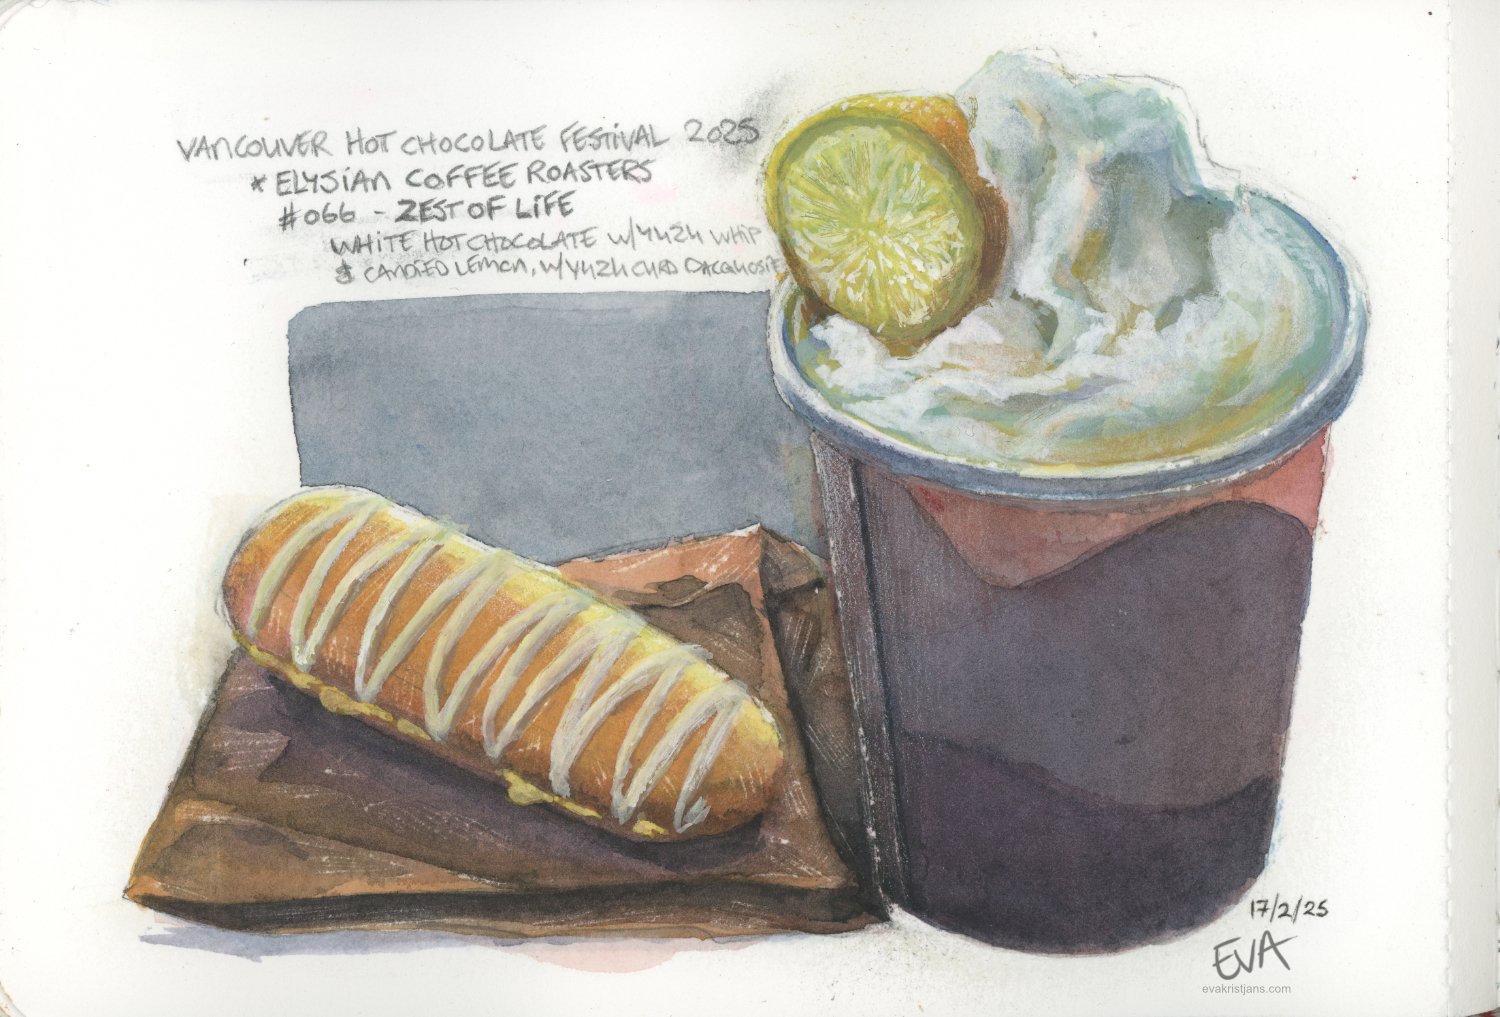 VANCOUVER HOT CHOCOLATE FESTIVAL 2025
* ELYSIAN COFFEE ROASTERS
#066 - ZEST OF LIFE
WHITE HOT CHOCOLATE W/YUZU WHIP
& CANDIED LEMON, W/YUZU CURD DACQUOISE
17/2/25
EVA
evakristjans.com